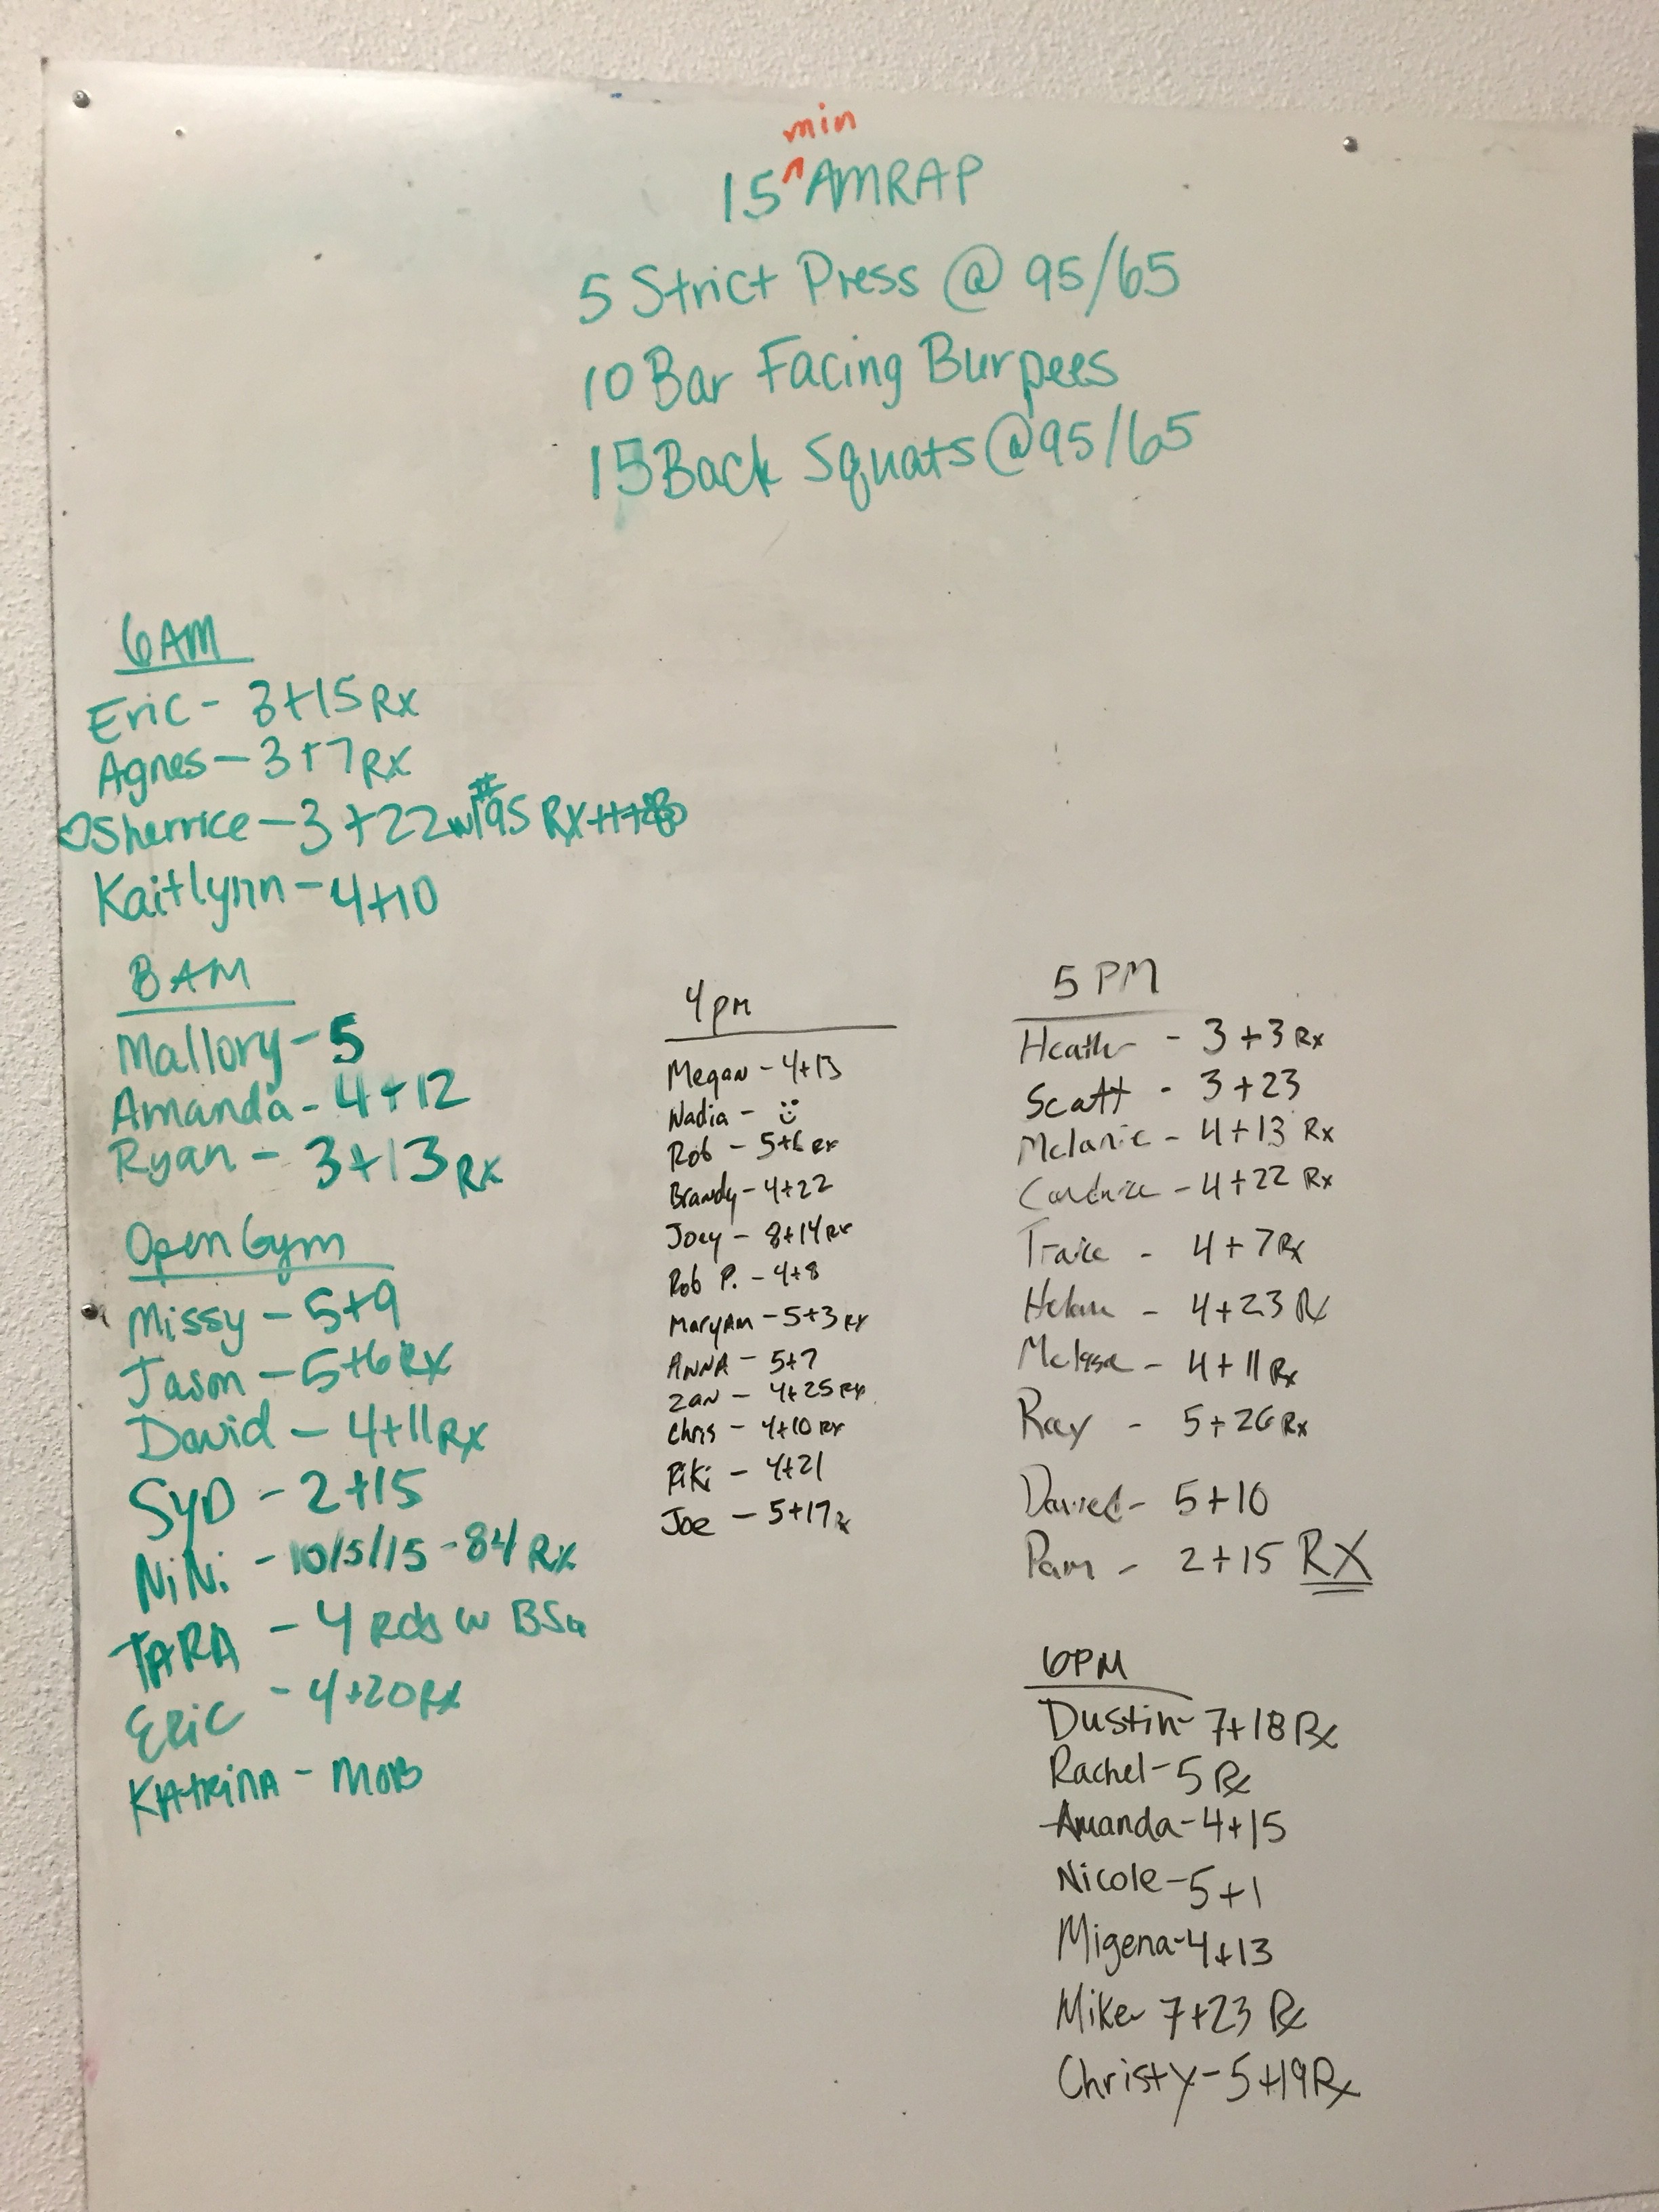 min
15 ^ AMRAP
5 Strict Press @ 95/65
10 Bar Facing Burpees
15 Back Squats @ 95/65
6AM
Eric - 3+15 Rx
Agnes - 3+7 Rx
♡Sherrice - 3+22 w/ #95 RX+++
Kaitlynn - 4+10
8AM
Mallory - 5
Amanda - 4+12
Ryan - 3+13 Rx
Open Gym
Missy - 5+9
Jason - 5+6 Rx
David - 4+11 Rx
SYD - 2+15
NiNi - 10/5/15 - 84 Rx
TARA - 4 RDs w BSq
ERIC - 4+20 Rx
KATRINA - MOB
4 PM
Megan - 4+13
Nadia - ☺
Rob - 5+6 Rx
Brandy - 4+22
Joey - 8+14 Rx
Rob P. - 4+8
MaryAm - 5+3 Rx
ANNA - 5+7
Zan - 4+25 Rx
Chris - 4+10 Rx
Riki - 4+21
Joe - 5+17 Rx
5 PM
Heath - 3+3 Rx
Scott - 3+23
Melanie - 4+13 Rx
Candice - 4+22 Rx
- 4+7 Rx
- 4+23 Rx
Melissa - 4+11 Rx
Ray - 5+26 Rx
Daniel - 5+10
Pam - 2+15 RX
6PM
Dustin - 7+18 Rx
Rachel - 5 Rx
Amanda - 4+15
Nicole - 5+1
Migena - 4+13
Mike - 7+23 Rx
Christy - 5+19 Rx